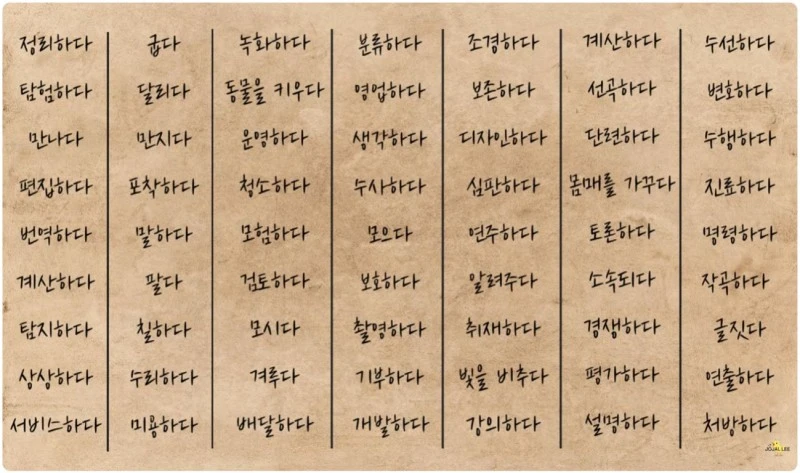 정리하다 굽다 녹화하다 분류하다 조경하다 계산하다 수선하다
탐험하다 달리다 동물을 키우다 영업하다 보존하다 선곡하다 변호하다
만나다 만지다 운영하다 생각하다 디자인하다 단련하다 수행하다
편집하다 포착하다 청소하다 수사하다 심판하다 몸매를 가꾸다 진료하다
번역하다 말하다 모험하다 모으다 연주하다 토론하다 명령하다
계산하다 팔다 검토하다 보호하다 알려주다 소속되다 작곡하다
탐지하다 칠하다 모시다 촬영하다 취재하다 경쟁하다 글짓다
상상하다 수리하다 겨루다 기부하다 빛을 비추다 평가하다 연출하다
서비스하다 미용하다 배달하다 개발하다 강의하다 설명하다 처방하다
JOJAL LEE